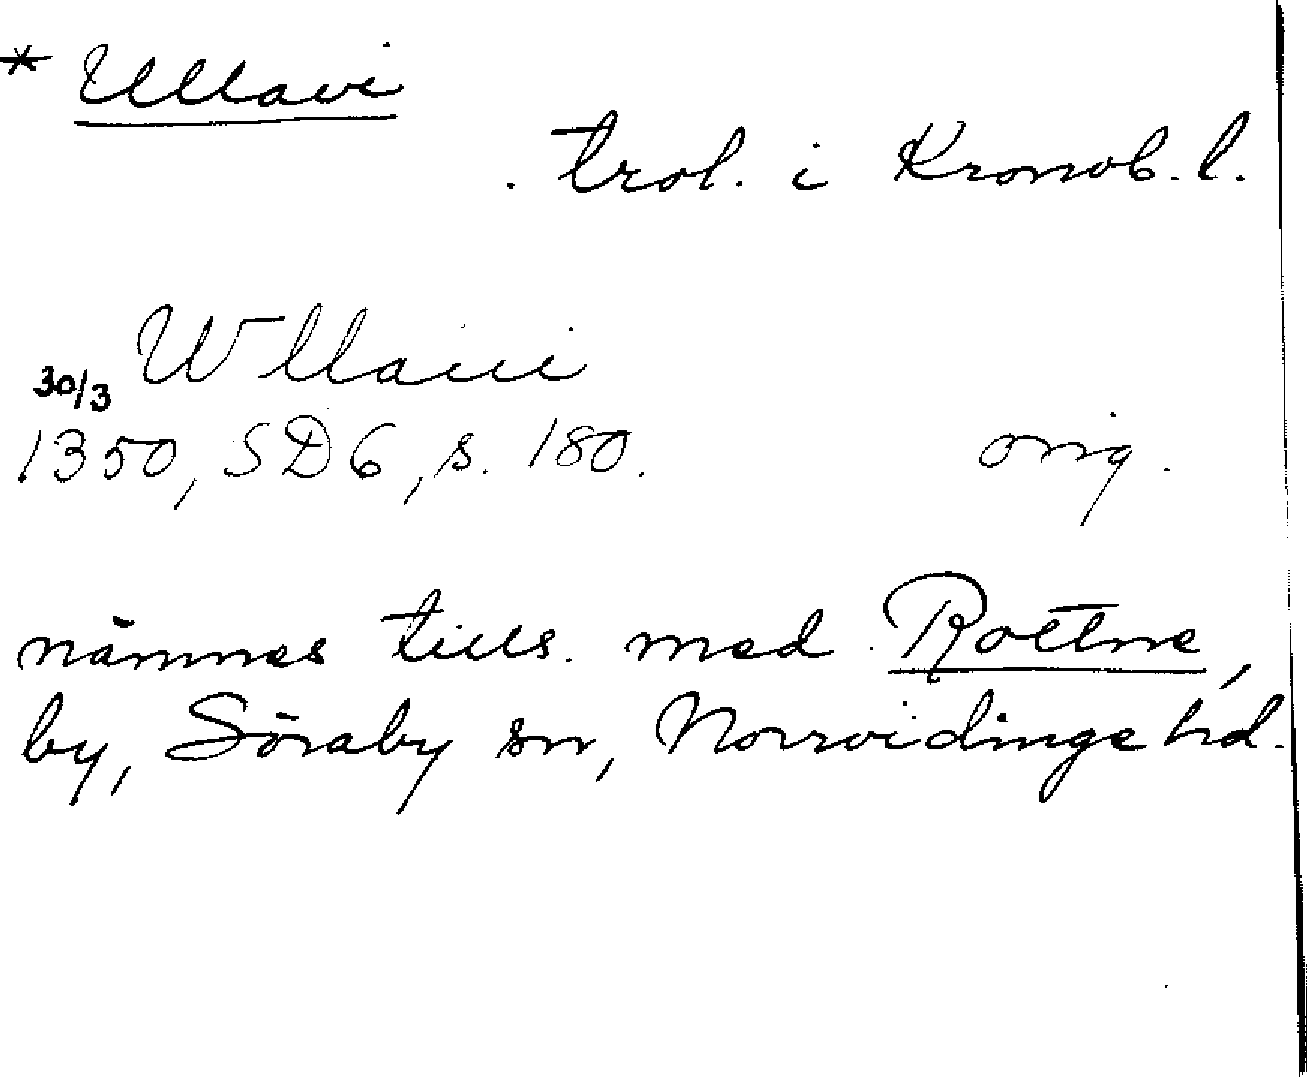 * Ullavi
trol. i Kronob. l.
Wllaui
30/3
1350, SD6, s. 180. orig.
nämnes tills. med Rottne,
by, Söraby sn, Norrvidinge hd.